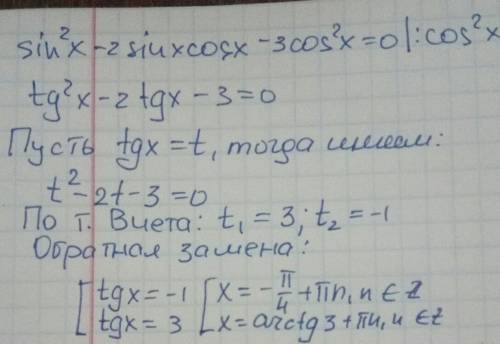 sin²x - 2sinxcosx - 3cos²x = 0 |: cos²x
tg²x - 2tgx - 3 = 0
Пусть tgx = t, тогда имеем:
t² - 2t - 3 = 0
По т. Виета: t₁ = 3; t₂ = -1
Обратная замена:
[ tgx = -1 [ x = -π/4 + πn, n ∈ Z
[ tgx = 3 [ x = arctg3 + πn, n ∈ Z